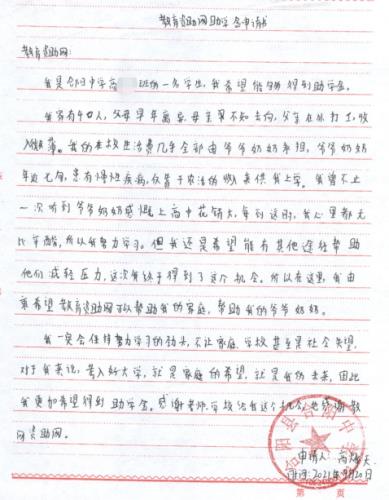 教育资助网助学金申请书
教育资助网:
我是合阳中学高 班的一名学生,我希望能够得到助学金。
我家有4口人,父母早年离异,母亲更不知去向,父亲在外打工,收
入微薄。我的学校生活费几乎全部由爷爷奶奶承担,爷爷奶奶
年近七旬,患有慢性疾病,仅靠干农活的收入来供我上学。我曾不止
一次听到爷爷奶奶感慨上高中花销大,每到这时,我心里都无
比辛酸,所以我努力学习。但我还是希望能有其他途径帮助
他们减轻压力,这次我终于得到了这个机会。所以在这里,我由
衷希望教育资助网可以帮助我的家庭,帮助我的爷爷奶奶。
我一定会保持努力学习的劲头,不让家庭、学校甚至是社会失望,
对于我来说,考入好大学,就是家庭的希望,就是我的未来,因此
我更加希望得到助学金。感谢老师、学校给我这个机会,也感谢教
育资助网。
申请人:高
时间:2021年9月20日
第 页